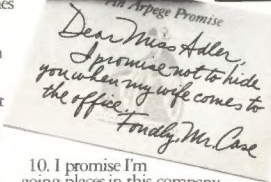 An Arpege Promise
Dear Miss Adler,
I promise not to hide
you when my wife comes to
the office.
Fondly, Mr. Case
10. I promise I'm
going places in this company